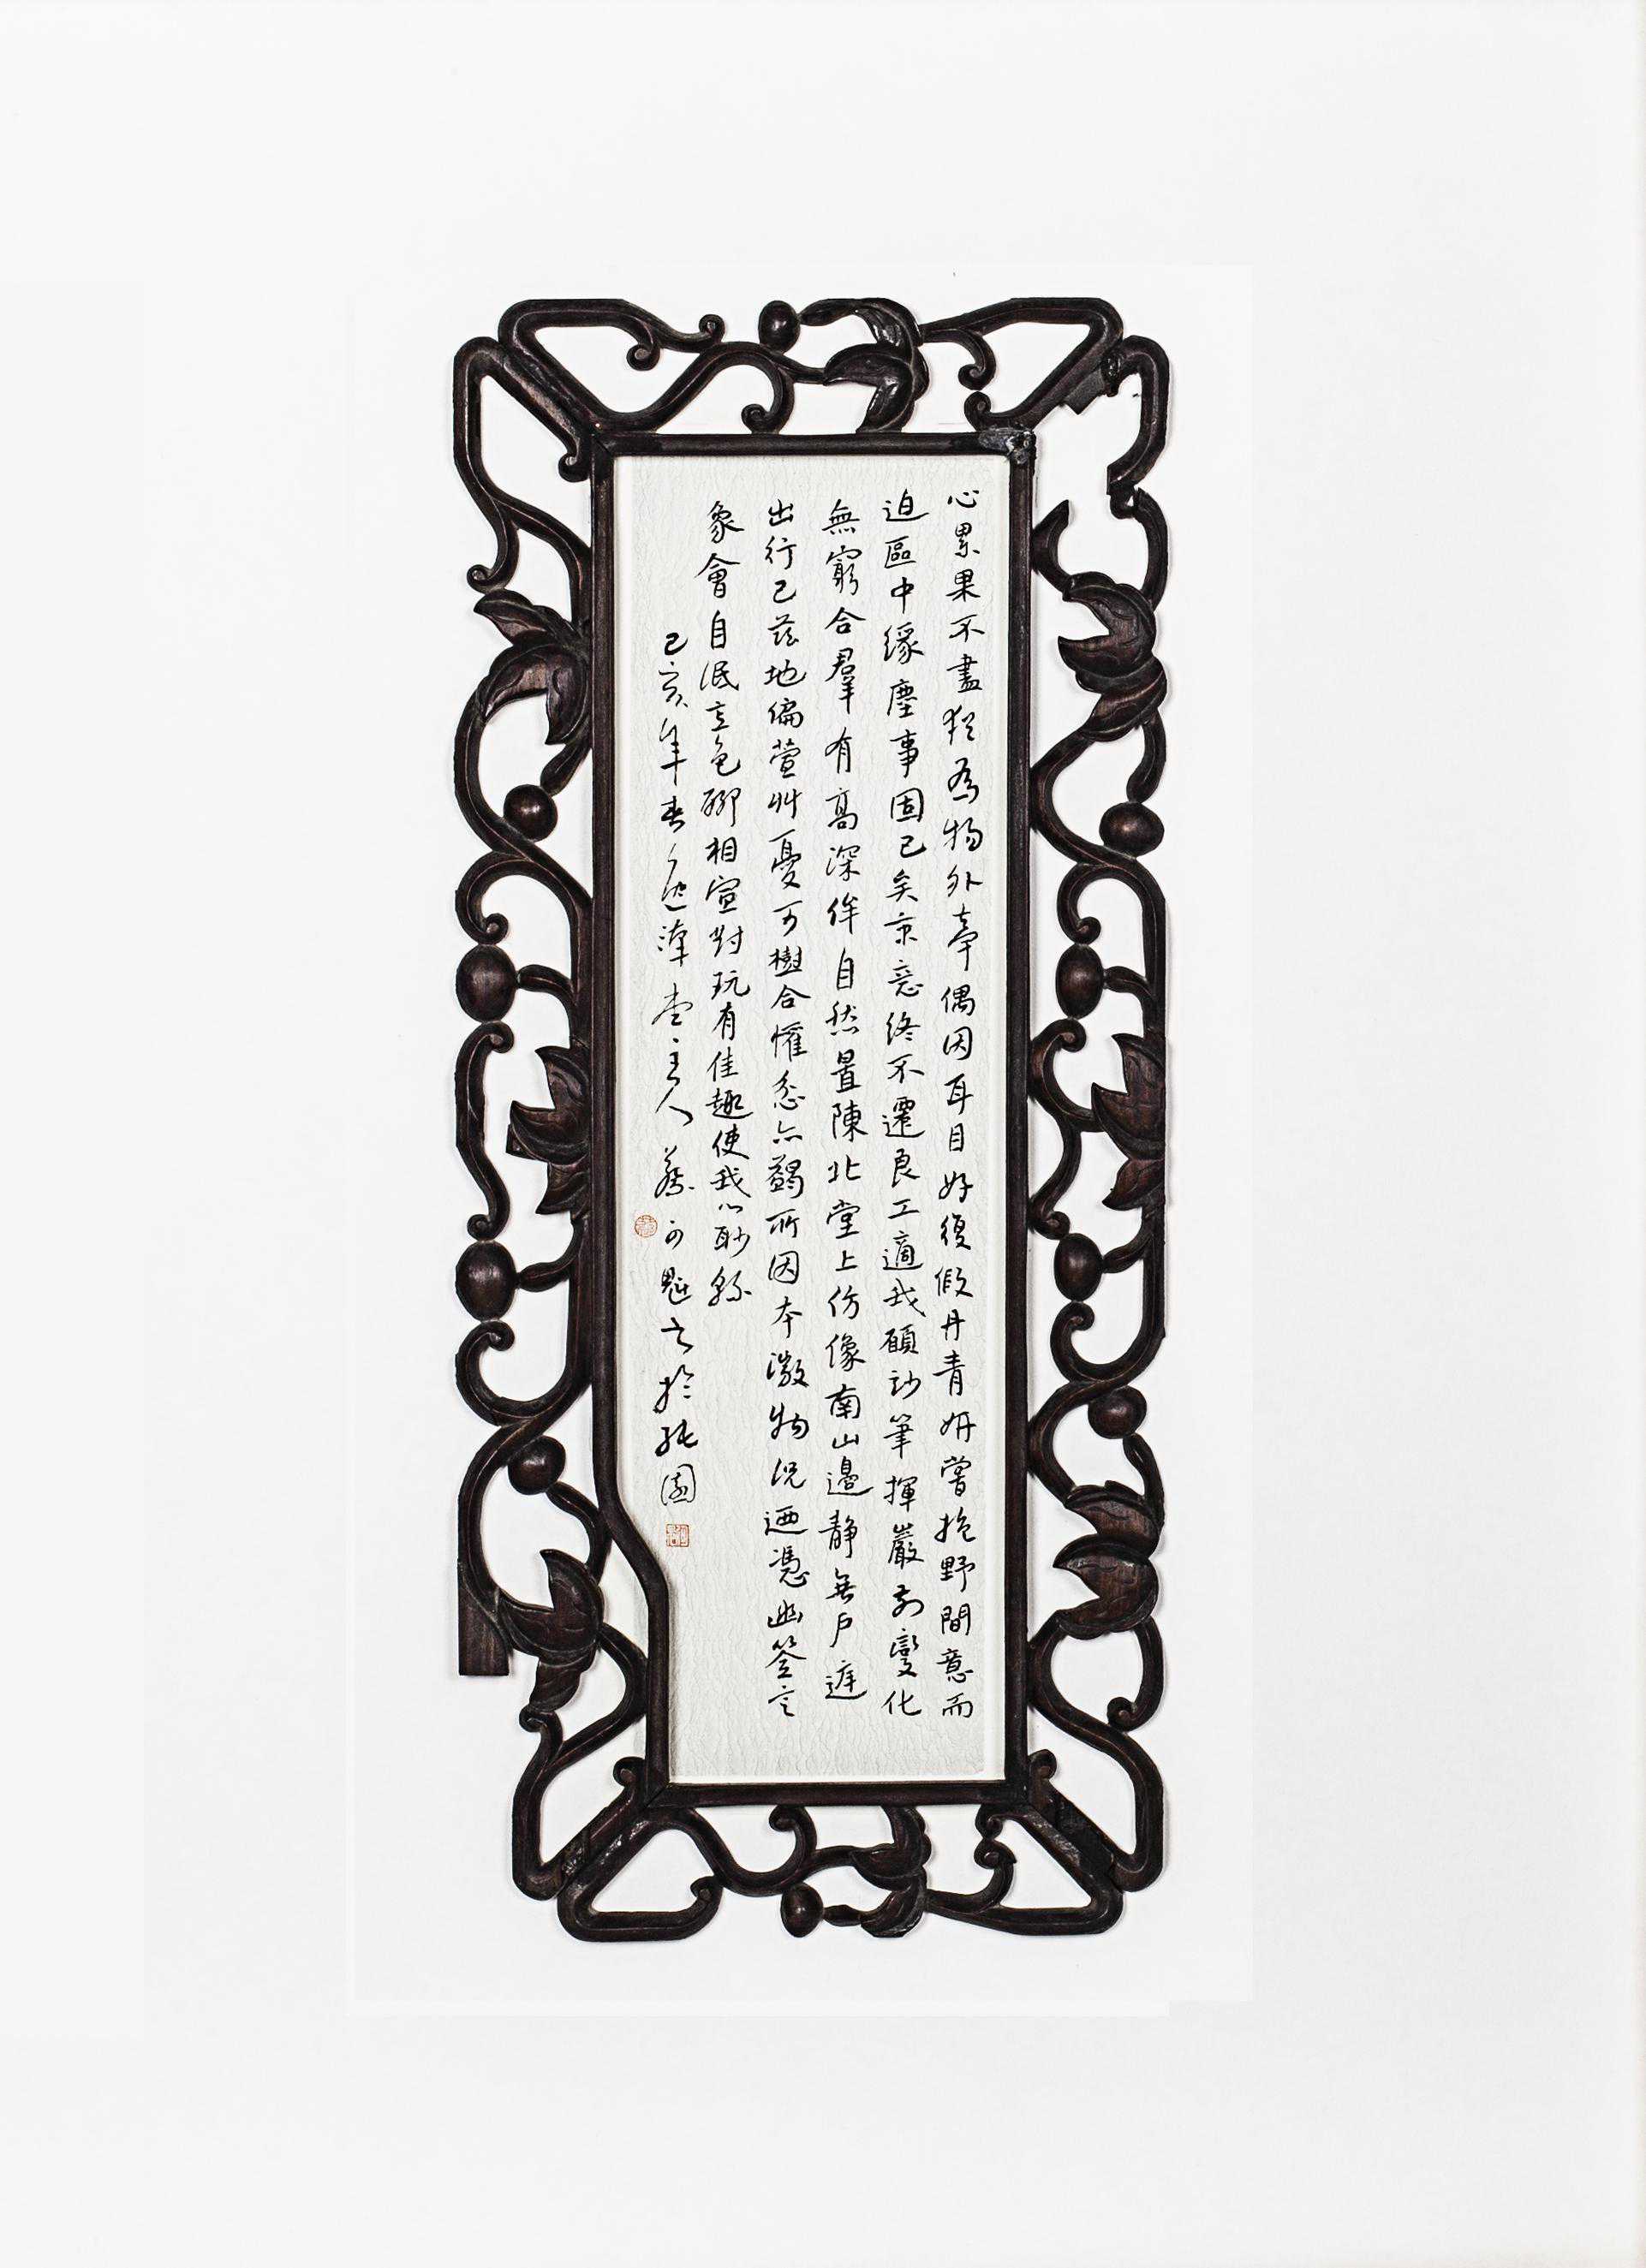 心累果不盡猶為物外牽偶因耳目好復假丹青妍嘗抱野間意而
迫區中緣塵事固已矣秉意終不遷良工適我願妙筆揮巖變化
無窮合羣有高深侔自然置陳北堂上仿像南山邊靜無戶
出行已茲地偏萱艸憂可樹合懽忿亦蠲所因本微物況迺憑幽筌言
象會自泯意色聊相宣對玩有佳趣使我心眇綿
己亥年春漳堂主人蔡可魁書於園